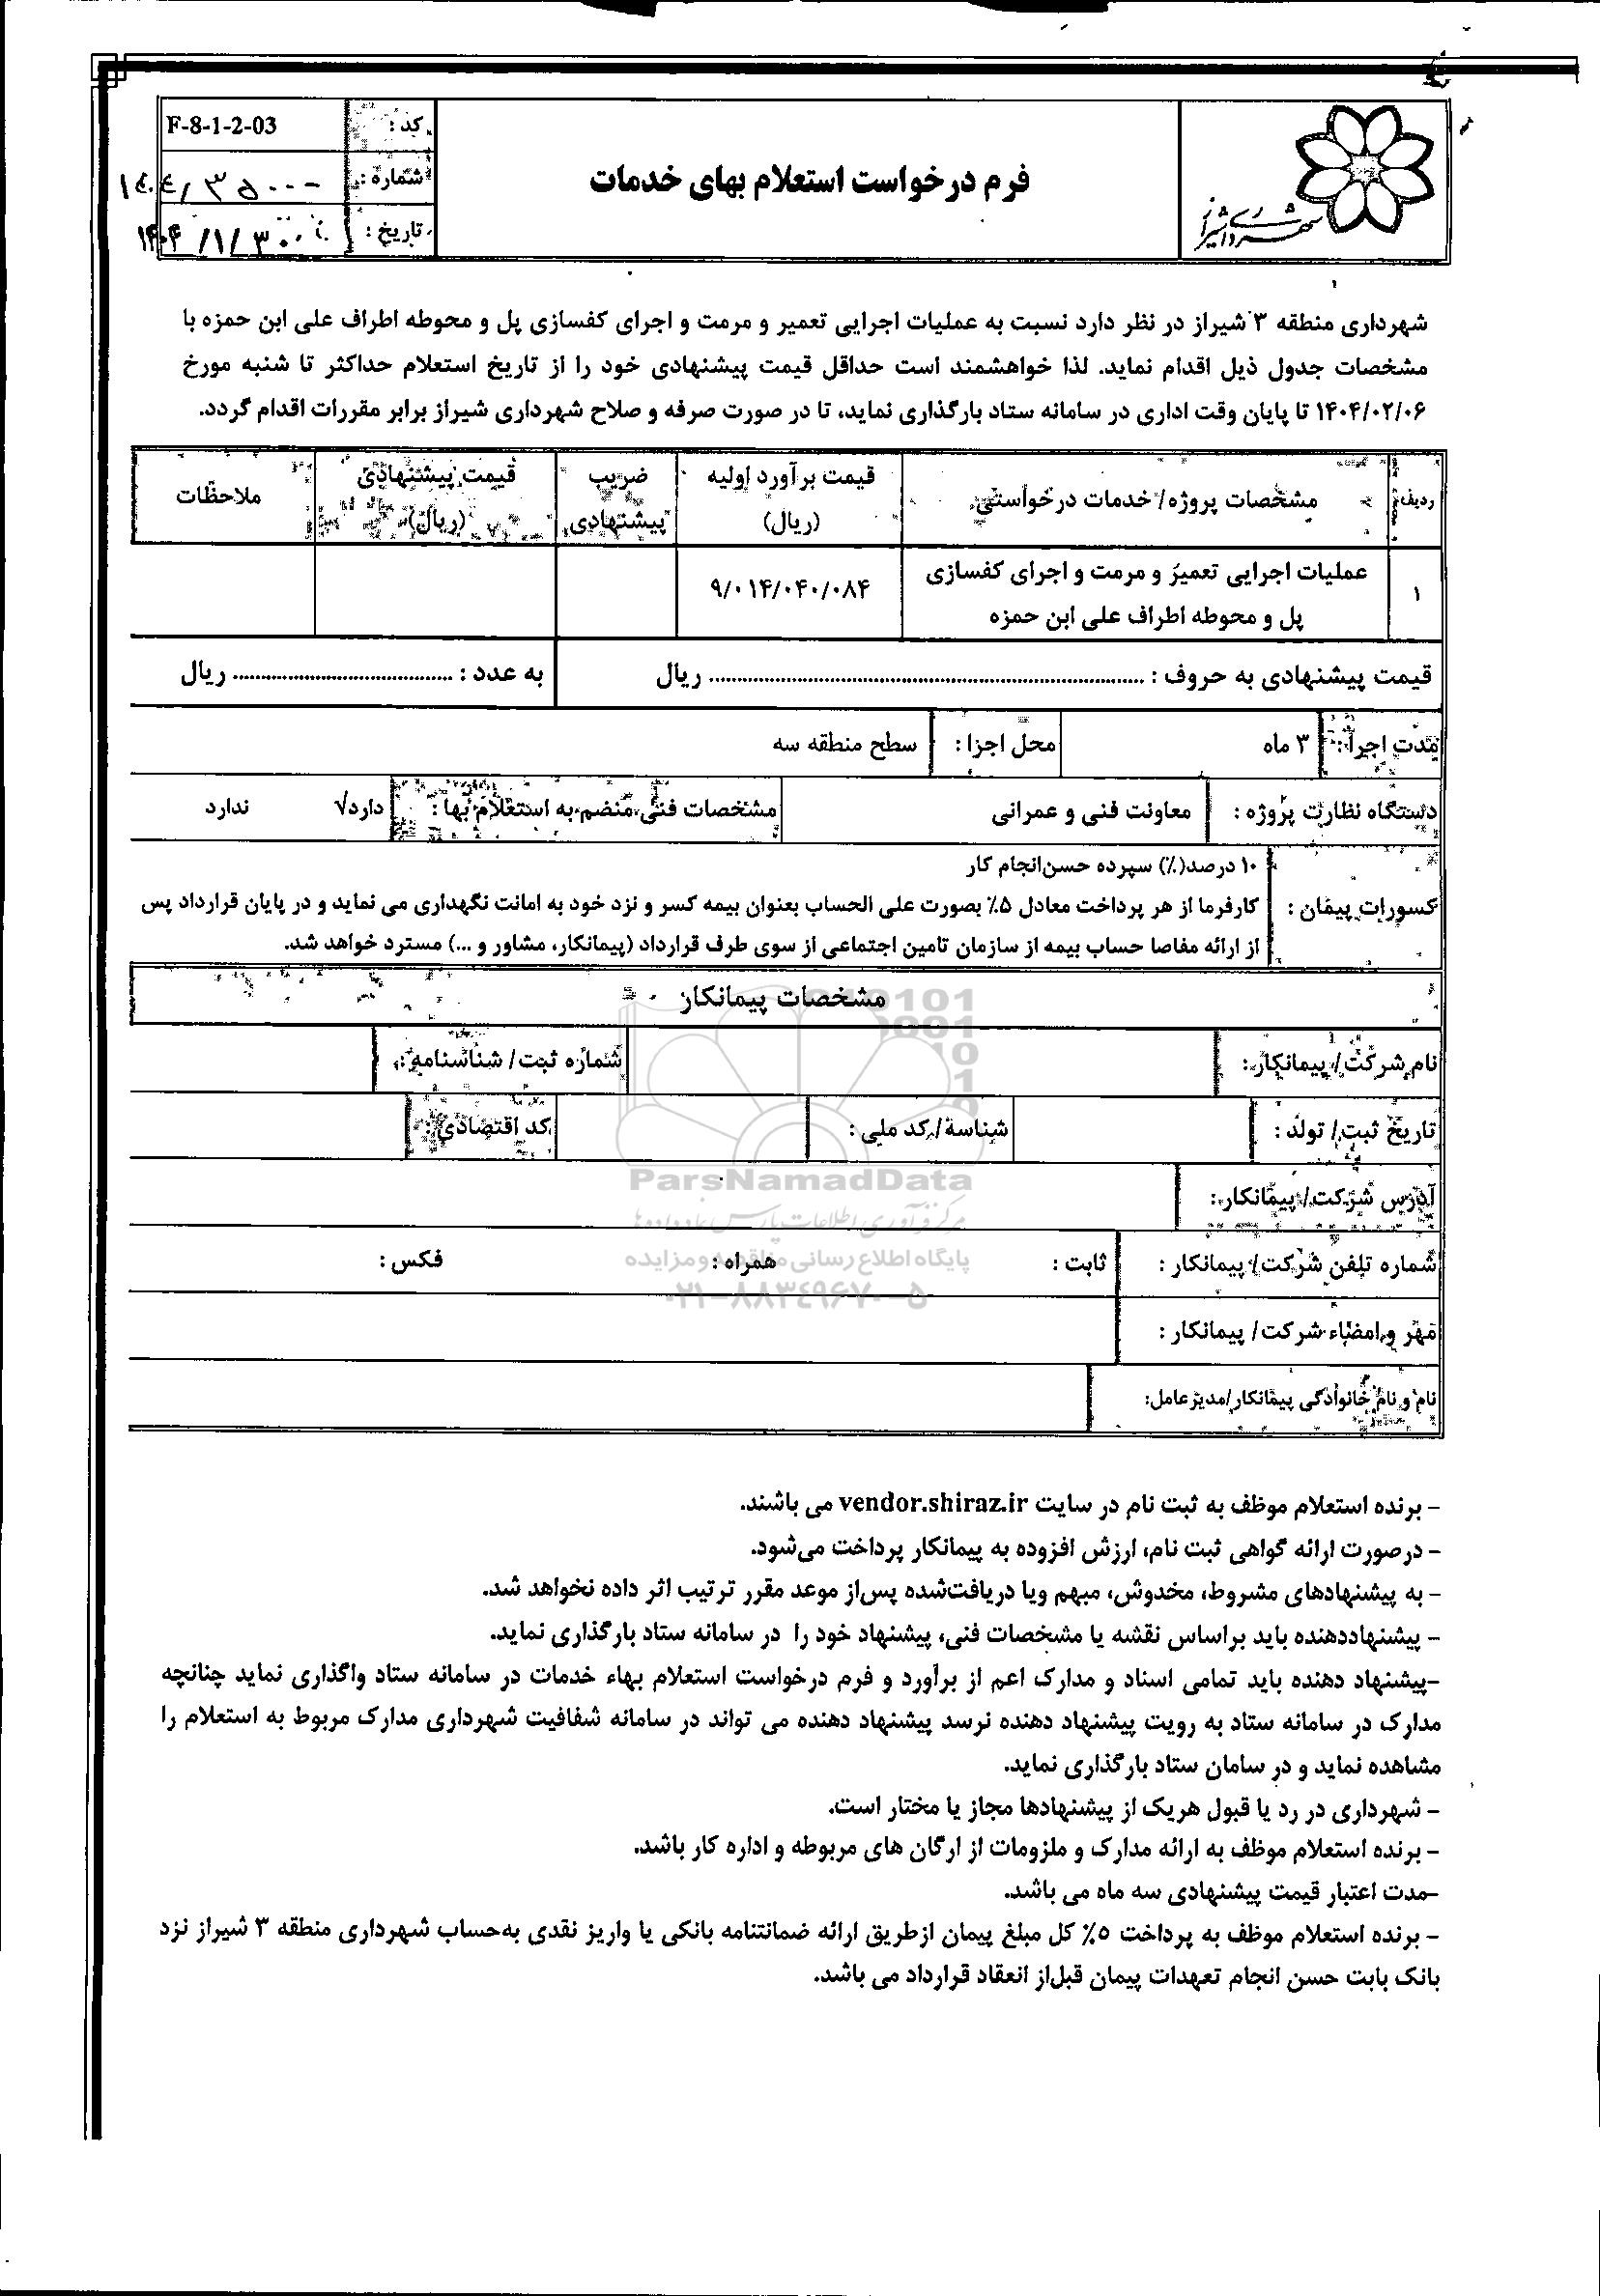 شهرداری شیراز
فرم درخواست استعلام بهای خدمات
کد : F-8-1-2-03
شماره : ۱۴۰۴/۳۵۰۰-
تاریخ : ۱۴۰۴/۱/۳۰
شهرداری منطقه ۳ شیراز در نظر دارد نسبت به عملیات اجرایی تعمیر و مرمت و اجرای کفسازی پل و محوطه اطراف علی ابن حمزه با
مشخصات جدول ذیل اقدام نماید. لذا خواهشمند است حداقل قیمت پیشنهادی خود را از تاریخ استعلام حداکثر تا شنبه مورخ
۱۴۰۴/۰۲/۰۶ تا پایان وقت اداری در سامانه ستاد بارگذاری نماید، تا در صورت صرفه و صلاح شهرداری شیراز برابر مقررات اقدام گردد.
ردیف مشخصات پروژه/ خدمات درخواستی قیمت برآورد اولیه (ریال) ضریب پیشنهادی قیمت پیشنهادی (ریال) ملاحظات
۱ عملیات اجرایی تعمیر و مرمت و اجرای کفسازی ۹/۰۱۴/۰۴۰/۰۸۴
پل و محوطه اطراف علی ابن حمزه
قیمت پیشنهادی به حروف : .......................... ریال به عدد : .......................... ریال
مدت اجرا : ۳ ماه محل اجرا : سطح منطقه سه
دستگاه نظارت پروژه : معاونت فنی و عمرانی مشخصات فنی منضم به استعلام بها : دارد√ ندارد
کسورات پیمان :
۱۰ درصد(٪) سپرده حسن‌انجام کار
کارفرما از هر پرداخت معادل ۵٪ بصورت علی الحساب بعنوان بیمه کسر و نزد خود به امانت نگهداری می نماید و در پایان قرارداد پس
از ارائه مفاصا حساب بیمه از سازمان تامین اجتماعی از سوی طرف قرارداد (پیمانکار، مشاور و ...) مسترد خواهد شد.
مشخصات پیمانکار
نام شرکت/ پیمانکار: شماره ثبت/ شناسنامه :
تاریخ ثبت/ تولد : شناسه/ کد ملی : کد اقتصادی :
آدرس شرکت/ پیمانکار :
شماره تلفن شرکت/ پیمانکار : ثابت : همراه : فکس :
مهر و امضاء شرکت/ پیمانکار :
نام و نام خانوادگی پیمانکار/مدیرعامل:
ParsNamadData
مرکز فرآوری اطلاعات پارس نماد داده‌ها
پایگاه اطلاع رسانی مناقصه و مزایده
۰۲۱-۸۸۳۴۹۶۷۰-۵
- برنده استعلام موظف به ثبت نام در سایت vendor.shiraz.ir می باشند.
- درصورت ارائه گواهی ثبت نام، ارزش افزوده به پیمانکار پرداخت می‌شود.
- به پیشنهادهای مشروط، مخدوش، مبهم ویا دریافت‌شده پس‌از موعد مقرر ترتیب اثر داده نخواهد شد.
- پیشنهاددهنده باید براساس نقشه یا مشخصات فنی، پیشنهاد خود را در سامانه ستاد بارگذاری نماید.
-پیشنهاد دهنده باید تمامی اسناد و مدارک اعم از برآورد و فرم درخواست استعلام بهاء خدمات در سامانه ستاد واگذاری نماید چنانچه
مدارک در سامانه ستاد به رویت پیشنهاد دهنده نرسد پیشنهاد دهنده می تواند در سامانه شفافیت شهرداری مدارک مربوط به استعلام را
مشاهده نماید و در سامان ستاد بارگذاری نماید.
- شهرداری در رد یا قبول هریک از پیشنهادها مجاز یا مختار است.
- برنده استعلام موظف به ارائه مدارک و ملزومات از ارگان های مربوطه و اداره کار باشد.
-مدت اعتبار قیمت پیشنهادی سه ماه می باشد.
- برنده استعلام موظف به پرداخت ۵٪ کل مبلغ پیمان ازطریق ارائه ضمانتنامه بانکی یا واریز نقدی به‌حساب شهرداری منطقه ۳ شیراز نزد
بانک بابت حسن انجام تعهدات پیمان قبل‌از انعقاد قرارداد می باشد.